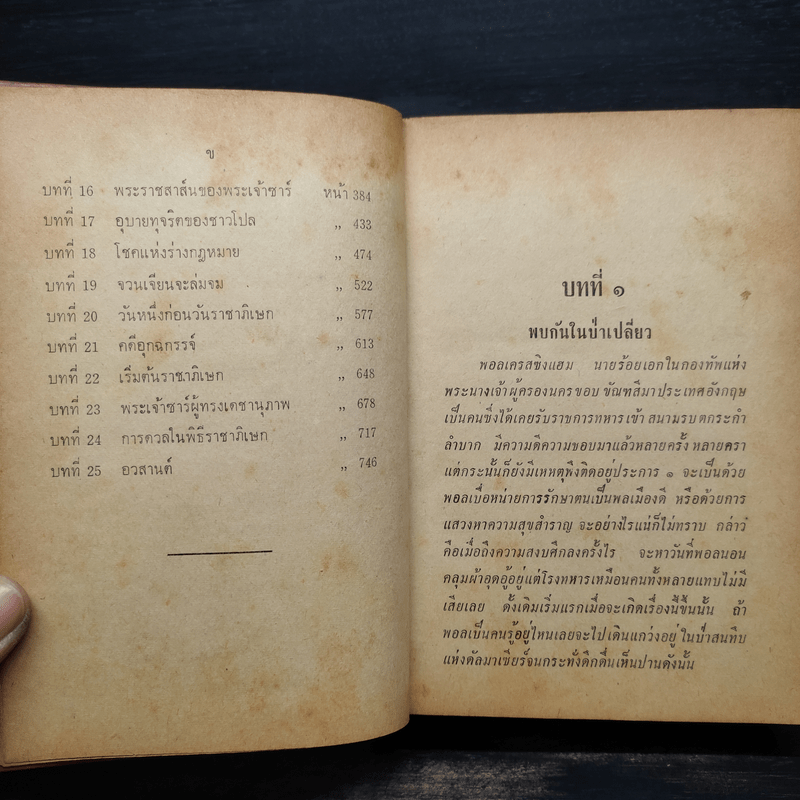 ข
บทที่ 16 พระราชสาส์นของพระเจ้าซาร์ หน้า 384
บทที่ 17 อุบายทุจริตของชาวโปล ,, 433
บทที่ 18 โชคแห่งร่างกฎหมาย ,, 474
บทที่ 19 จวนเจียนจะล่มจม ,, 522
บทที่ 20 วันหนึ่งก่อนวันราชาภิเษก ,, 577
บทที่ 21 คดีอุกฉกรรจ์ ,, 613
บทที่ 22 เริ่มต้นราชาภิเษก ,, 648
บทที่ 23 พระเจ้าซาร์ผู้ทรงเดชานุภาพ ,, 678
บทที่ 24 การดวลในพิธีราชาภิเษก ,, 717
บทที่ 25 อวสานต์ ,, 746
บทที่ ๑
พบกันในป่าเปลี่ยว
พอลเครสซิงแฮม นายร้อยเอกในกองทัพแห่ง
พระนางเจ้าผู้ครองนครขอบขัณฑสีมาประเทศอังกฤษ
เป็นคนซึ่งได้เคยรับราชการทหารเข้าสนามรบตกระกำ
ลำบาก มีความดีความชอบมาแล้วหลายครั้งหลายครา
แต่กระนั้นก็ยังมีเหตุพึงติดอยู่ประการ ๑ จะเป็นด้วย
พอลเบื่อหน่ายการรักษาตนเป็นพลเมืองดี หรือด้วยการ
แสวงหาความสุขสำราญ จะอย่างไรแน่ก็ไม่ทราบ กล่าว
คือเมื่อถึงความสงบศึกลงครั้งไร จะหาวันที่พอลนอน
คลุมผ้าอุดอู้อยู่แต่โรงทหารเหมือนคนทั้งหลายแทบไม่มี
เสียเลย ดั้งเดิมเริ่มแรกเมื่อจะเกิดเรื่องนี้ขึ้นนั้น ถ้า
พอลเป็นคนรู้อยู่ไหนเลยจะไปเดินแกว่งอยู่ในป่าสนทึบ
แห่งดัลมาเชียร์จนกระทั่งดึกดื่นเห็นปานดังนั้น